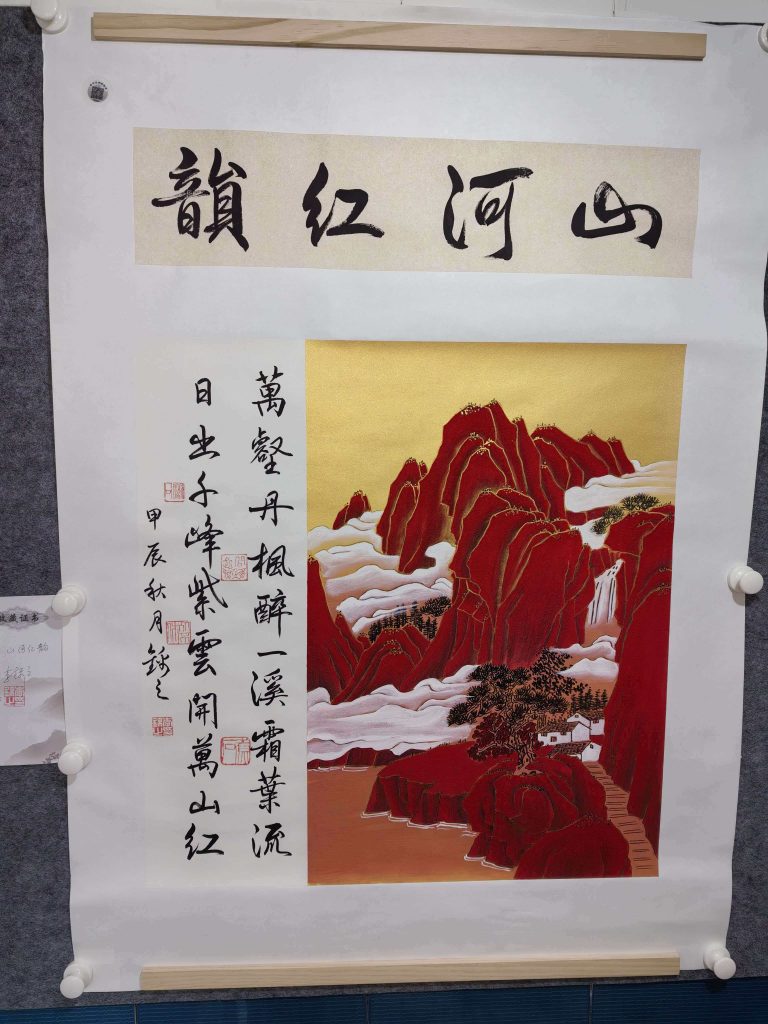 山河红韻
萬壑丹楓醉一溪霜葉流
日出千峰紫雲開萬山红
甲辰秋月
收藏证书
山河红韵